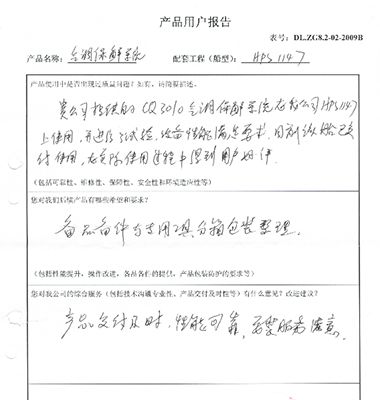 产品用户报告
表号：DL.ZG8.2-02-2009B
产品名称：台湘保鲜系统 配套工程（船型）：HPS1147
产品使用中是否出现过质量问题？如有，请简要描述。
贵公司提供的CQ3010 保鲜系统在我公司HPS1147
上使用，并进行了试验，设备性能满足要求。目前该船已交
付使用，在实际使用过程中得到用户好评
（包括可靠性、维修性、保障性、安全性和环境适应性等）
您对我们后续产品有哪些希望和要求？
备品备件与专用工具分箱包装整理。
（包括性能提升，操作改进，备品备件的提供，产品包装防护的要求等）
您对我公司的综合服务（包括技术沟通专业性、产品交付及时性等）有什么意见？改进建议？
产品交付及时，性能可靠，服务满意。